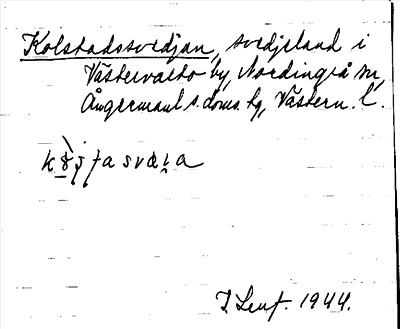 Kolstadssvedjan, svedjeland i
Västervalto by, Nordingrå sn,
Ångermanl. s. doms. hg, Västern. l.
svæ
1944.